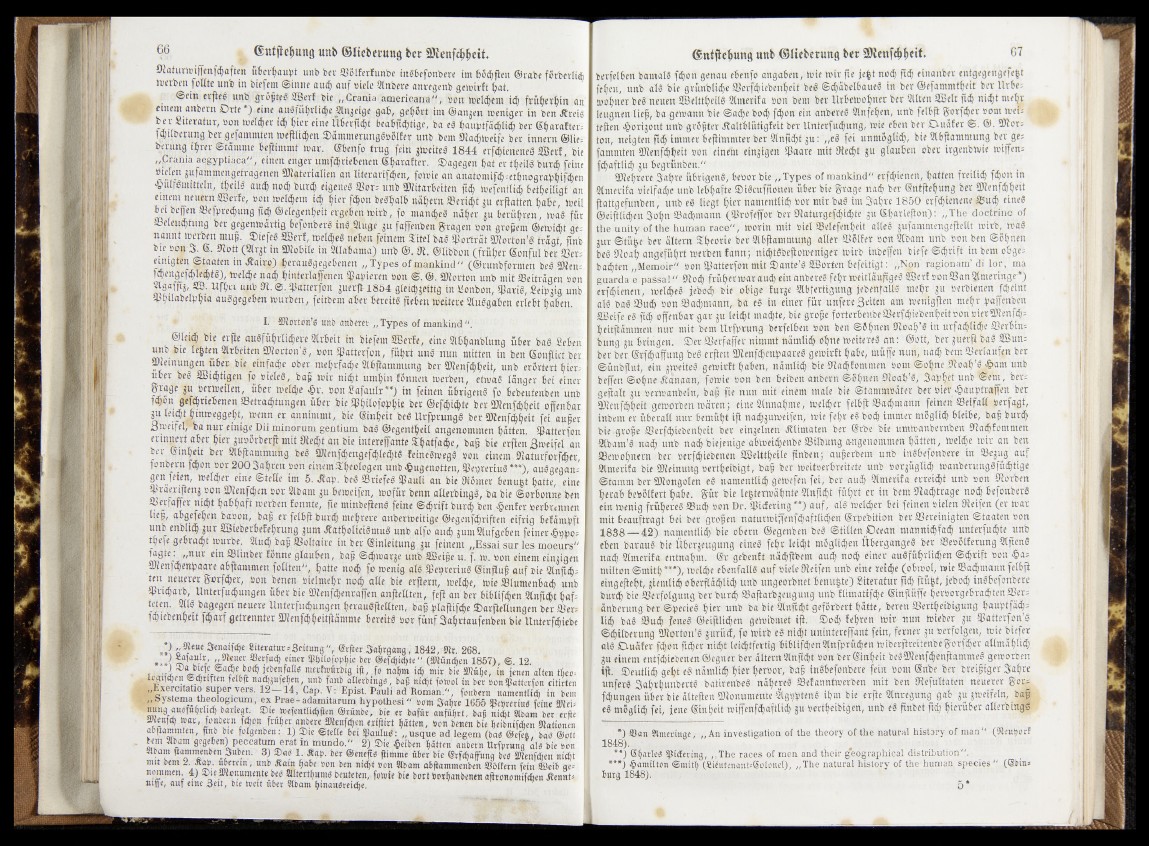 66 Entstehung und Gliederung der Menschheit.
Naturwissenschaften überhaupt und der Völkerkunde insbesondere im höchsten Grade förderlich
werden sollte und in diesem Sinne auch auf viele Andere anregend gewirkt hat.
Sein erstes und größtes Werk die „Crania americana“, von welchem ich früherhin an
einem andern Orte*) eine ausführliche Anzeige gab, gehört im Ganzen weniger in den Kreis
der Literatur, von welcher ich hier eine Übersicht beabsichtige, da es hauptsächlich der Charakter-
schilderung der gesammten westlichen Dämmerungsvölker und dem Nachweise der innern Glie-
derung ihrer Stämme bestimmt war. Ebenso trug sein zweites 1844 erschienenes Werk, die
„Crania aegyptiaca“, einen enger umschriebenen Charakter. Dagegen hat er theils durch seine
vielen zusammengetragenen Materialien an literarischen, sowie an anatomisch-ethnographischen
Hülfsmitteln, theils auch noch durch eigenes Vor- und Mitarbeiten sich wesentlich betheiligt an
einem neuern Werke, von welchem ich hier schon deshalb nähern Bericht zu erstatten habe, weil
bei dessen Besprechung sich Gelegenheit ergeben wird, so manches näher zu berühren, was für
Beleuchtung der gegenwärtig besonders ins Auge zu fassenden Fragen von großem Gewicht ge-
nannt werden muß. Dieses Werk, welches neben seinem Titel das Porträt Morton's trägt, sind
die von J. C. Nott (Arzt in Mobile in Alabama) und G. R. Gliddon (früher Consul der Ver-
einigten Staaten in Kairo) herausgegebenen „Types of mankind“ (Grundformen des Men-
schengeschlechts), welche nach hinterlassenen Papieren von S. G. Morton und mit Beiträgen von
Agassiz, W. Usher und H. S. Patterson zuerst 1854 gleichzeitig in London, Paris, Leipzig und
Philadelphia ausgegeben wurden, seitdem aber bereits sieben weitere Ausgaben erlebt haben.
I. Morton's und anderer „Types of mankind“.
Gleich die erste ausführlichere Arbeit in diesem Werke, eine Abhandlung über das Leben
und die letzten Arbeiten Morton's, von Patterson, führt uns nun mitten in den Conflict der
Meinungen über die einfache oder mehrfache Abstammung der Menschheit, und erörtert hier-
über des Wichtigen so vieles, daß wir nicht umhin können werden, etwas länger bei einer
Frage zu verweilen, über welche Hr. von Lasaulx**) in seinen übrigens so bedeutenden und
schön geschriebenen Betrachtungen über die Philosophie der Geschichte der Menschheit offenbar
zu leicht hinweggeht, wenn er annimmt, die Einheit des Ursprungs der Menschheit sei außer
Zweifel, da nur einige Dii minorum gentium das Gegentheil angenommen hätten. Patterson
erinnert aber hier zuvörderst mit Recht an die interessante Thatsache, daß die ersten Zweifel an
der Einheit der Abstammung des Menschengeschlechts keineswegs von einem Naturforscher,
sondern schon vor 200 Jahren von einem Theologen und Hugenotten, Peyrerius***), ausgegan-
gen seien, welcher eine Stelle im 5. Kap. des Briefes Pauli an die Römer benutzt hatte, eine
Präexistenz von Menschen vor Adam zu beweisen, wofür denn allerdings, da die Sorbonne den
Verfasser nicht habhaft werden konnte, sie mindestens seine Schrift durch den Henker verbrennen
ließ, abgesehen davon, daß er selbst durch mehrere anderweitige Gegenschriften eifrig bekämpft
und endlich zur Wiederbekehrung zum Katholicismus und also auch zum Aufgeben seiner Hypo-
these gebracht wurde. Auch daß Voltaire in der Einleitung zu seinem „Essai sur les moeurs“
sagte: „nur ein Blinder könne glauben, daß Schwarze und Weiße u. s. w. von einem einzigen
Menschenpaare abstammen sollten“, hatte noch so wenig als Peyrerius Einfluß auf die Ansich-
ten neuerer Forscher, von denen vielmehr noch alle die erstern, welche, wie Blumenbach und
Prichard, Untersuchungen über die Menschenrassen anstellten, fest an der biblischen Ansicht haf-
teten. Als dagegen neuere Untersuchungen herausstellten, daß plastische Darstellungen der Ver-
schiedenheit scharf getrennter Menschheitstämme bereits vor fünf Jahrtausenden die Unterschiede
*) „Neue Jenaische Literatur-Zeitung“, Erster Jahrgang, 1842, Nr. 268.
**) Lasaulx, „Neuer Versuch einer Philosophie der Geschichte“ (München 1857), S. 12.
***) Da diese Sache doch jedenfalls merkwürdig ist, so nahm ich mir die Mühe, in jenen alten theo-
logischen Schriften selbst nachzusehen, und fand allerdings, daß nicht sowol in der von Patterson citirten
„Exercitatio super vers. 12—14, Cap. V: Epist. Pauli ad Roman.“, sondern namentlich in dem
„Systema theologicum, ex Prae-adamitarum hypothesi“ vom Jahre 1655 Peyrerius seine Mei-
nung ausführlich darlegt. Die wesentlichsten Gründe, die er dafür anführt, daß nicht Adam der erste
Mensch war, sondern schon früher andere Menschen existirt hätten, von denen die heidnischen Nationen
abstammten, sind die folgenden: 1) Die Stelle bei Paulus: „usque ad legem (das Gesetz, das Gott
dem Adam gegeben) peccatum erat in mundo.“ 2) Die Heiden hätten andern Ursprung als die von
Adam stammenden Juden. 3) Das 1. Kap. der Genesis stimme über die Erschaffung des Menschen nicht
mit dem 2. Kap. überein, und Kain habe von den nicht von Adam abstammenden Völkern sein Weib ge-
nommen. 4) Die Monumente des Alterthums deuteten, sowie die dort vorhandenen astronomischen Kennt-
nisse, auf eine Zeit, die weit über Adam hinausreiche.
Entstehung und Gliederung der Menschheit. 67
derselben damals schon genau ebenso angaben, wie wir sie jetzt noch sich einander entgegengesetzt
sehen, und als die gründliche Verschiedenheit des Schädelbaues in der Gesammtheit der Urbe-
wohner des neuen Welttheils Amerika von dem der Urbewohner der Alten Welt sich nicht mehr
leugnen ließ, da gewann die Sache doch schon ein anderes Ansehen, und selbst Forscher vom wei-
testen Horizont und größter Kaltblütigkeit der Untersuchung, wie eben der Quäker S. G. Mor-
ton, neigten sich immer bestimmter der Ansicht zu: „es sei unmöglich, die Abstammung der ge-
sammten Menschheit von einem einzigen Paare mit Recht zu glauben oder irgendwie wissen-
schaftlich zu begründen.“
Mehrere Jahre übrigens, bevor die „Types of mankind“ erschienen, hatten freilich schon in
Amerika vielfache und lebhafte Discussionen über die Frage nach der Entstehung der Menschheit
stattgefunden, und es liegt hier namentlich vor mir das im Jahre 1850 erschienene Buch eines
Geistlichen John Bachmann (Professor der Naturgeschichte zu Charleston): „The doctrine of
the unity of the human race“, worin mit viel Belesenheit alles zusammengestellt wird, was
zur Stütze der ältern Theorie der Abstammung aller Völker von Adam und von den Söhnen
des Noah angeführt werden kann; nichtsdestoweniger wird indessen diese Schrift in dem obge-
dachten „Memoir“ von Patterson mit Dante's Worten beseitigt: „Non ragionam' di lor, ma
guarda e passa!“ Noch früher war auch ein anderes sehr weitläufiges Werk von Van Amringe*)
erschienen, welches jedoch die obige kurze Abfertigung jedenfalls mehr zu verdienen scheint
als das Buch von Bachmann, da es in einer für unsere Zeiten am wenigsten mehr passenden
Weise es sich offenbar gar zu leicht machte, die große forterbende Verschiedenheit von vier Mensch-
heitstämmen nur mit dem Ursprung derselben von den Söhnen Noah's in ursachliche Verbin-
dung zu bringen. Der Verfasser nimmt nämlich ohne weiteres an: Gott, der zuerst das Wun-
der der Erschaffung des ersten Menschenpaares gewirkt habe, müsse nun, nach dem Verlaufen der
Sündflut, ein zweites gewirkt haben, nämlich die Nachkommen vom Sohne Noah's Ham und
dessen Sohne Kanaan, sowie von den beiden andern Söhnen Noah's, Japhet und Sem, der-
gestalt zu verwandeln, daß sie nun mit einem male die Stammväter der vier Hauptrassen der
Menschheit geworden wären; eine Annahme, welcher selbst Bachmann seinen Beifall versagt,
indem er überall nur bemüht ist nachzuweisen, wie sehr es doch immer möglich bleibe, daß durch
die große Verschiedenheit der einzelnen Klimaten der Erde die umwandernden Nachkommen
Adam's nach und nach diejenige abweichende Bildung angenommen hätten, welche wir an den
Bewohnern der verschiedenen Welttheile finden; außerdem und insbesondere in Bezug auf
Amerika die Meinung vertheidigt, daß der weitverbreitete und vorzüglich wanderungssüchtige
Stamm der Mongolen es namentlich gewesen sei, der auch Amerika erreicht und von Norden
herab bevölkert habe. Für die letzterwähnte Ansicht führt er in dem Nachtrage noch besonders
ein wenig früheres Buch von Dr. Pickering**) auf, als welcher bei seinen vielen Reisen (er war
mit beauftragt bei der großen naturwissenschaftlichen Expedition der Vereinigten Staaten von
1838—42) namentlich die obern Gegenden des Stillen Ocean mannichfach untersuchte und
eben daraus die Überzeugung eines sehr leicht möglichen Überganges der Bevölkerung Asiens
nach Amerika entnahm. Er gedenkt nächstdem auch noch einer ausführlichen Schrift von Ha-
milton Smith***), welche ebenfalls auf viele Reisen und eine reiche (obwol, wie Bachmann selbst
eingesteht, ziemlich oberflächlich und ungeordnet benutzte) Literatur sich stützt, jedoch insbesondere
durch die Verfolgung der durch Bastardzeugung und klimatische Einflüsse hervorgebrachten Ver-
änderung der Species hier und da die Ansicht gefördert hätte, deren Vertheidigung hauptsäch-
lich das Buch jenes Geistlichen gewidmet ist. Doch kehren wir nun wieder zu Patterson's
Schilderung Morton's zurück, so wird es nicht uninteressant sein, ferner zu verfolgen, wie dieser
als Quäker schon sicher nicht leichtfertig biblischen Ansprüchen widerstreitende Forscher allmählich
zu einem entschiedenen Gegner der ältern Ansicht von der Einheit des Menschenstammes geworden
ist. Deutlich geht es nämlich hier hervor, daß insbesondere sein vom Ende der dreißiger Jahre
unsers Jahrhunderts datirendes näheres Bekanntwerden mit den Resultaten neuerer For-
schungen über die ältesten Monumente Ägyptens ihm die erste Anregung gab zu zweifeln, daß
es möglich sei, jene Einheit wissenschaftlich zu vertheidigen, und es findet sich hierüber allerdings
*) Van Amringe, „An investigation of the theory of the natural history of man“ (Neuyork
1848).
**) Charles Pickering, „The races of men and their geographical distribution“.
***) Hamilton Smith (Lieutenant-Colonel), „The natural history of the human species“ (Edin-
burg 1848).
5*